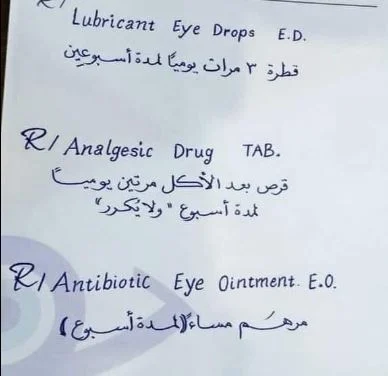 R/
Lubricant Eye Drops E.D.
قطرة ٣ مرات يومياً لمدة أسبوعين
R/ Analgesic Drug TAB.
قرص بعد الأكل مرتين يومياً
لمدة أسبوع "ولا يُكرر"
R/ Antibiotic Eye Ointment. E.O.
مرهم مساءً (لمدة أسبوع)